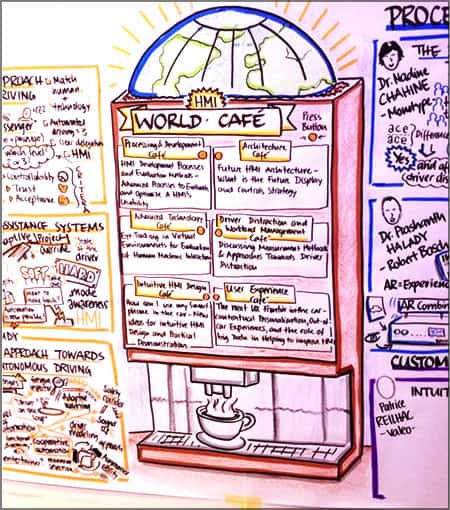 PROACH
RIVING
Match
human
technology
Automated
driving
HMI
Controllability
Trust
Acceptance
SISTANCE SYSTEMS
aptive Project
SOFT
HARD
mode
awareness
HMI
APPROACH TOWARDS
TONOMOUS DRIVING
Adaptive
driver
modeling
cooperative
automation
HMI
WORLD CAFÉ
Press
Button
Processing & Development
Café
HMI Development Processes
and Evaluation Methods -
Advanced Process to Evaluate
and Optimize A HMIs
Usability
Architecture
Café
Future HMI Architecture -
What is the Future Display
and Controls Strategy
Advanced Technology
Café
Eye Tracking in Virtual
Environments for Evaluation
of Human Machine Interaction
Driver Distraction and
Workload Management
Café
Discussing Measurement Methods
& Approaches Towards Driver
Distraction
Intuitive HMI Design
Café
How can I use my Smart
phone in the car - New
ideas for intuitive HMI
Design and Partial
Demonstration
User Experience
Café
The next UX Frontier in the car -
Contextual Personalization, Out-of-
Car Experiences, and the role of
Big Data in Helping to improve HMI
PROCE
THE
Dr. Nadine
CHAHINE
- Monotype -
ace
ace
Difference
Yes
and af
driver dis
Dr. Prashanth
HALADY
- Robert Bosch
AR = Experience
AR Combin
CUSTOM
INTUIT
Patrice
REILHAC
- Valeo -